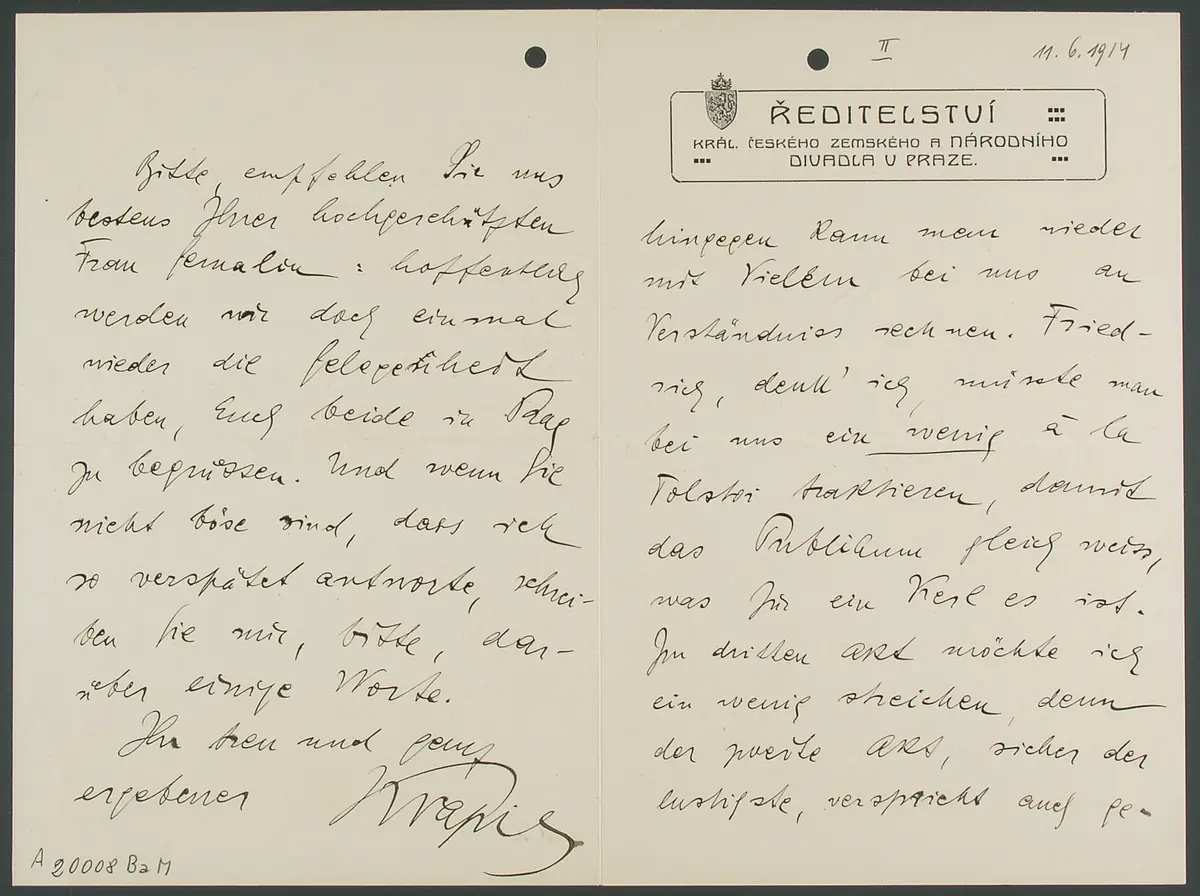 Bitte, empfehlen Sie uns
bestens Ihrer hochgeschätzten
Frau Gemalin : hoffentlich
werden wir doch einmal
wieder die Gelegenheit
haben, Euch beide in Prag
zu begrüssen. Und wenn Sie
nicht böse sind, dass ich
so verspätet antworte, schrei-
ben Sie mir, bitte, dar-
über einige Worte.
Ihr treu und ganz
ergebener Kvapil
A 20008 BaM
II
11. 6. 1914
ŘEDITELSTVÍ
KRÁL. ČESKÉHO ZEMSKÉHO A NÁRODNÍHO
DIVADLA V PRAZE.
hingegen kann man wieder
mit Vielem bei uns an
Verständniss rechnen. Fried-
rich, denk' ich, müsste man
bei uns ein wenig à la
Tolstoi traktieren, damit
das Publikum gleich weiss,
was für ein Kerl es ist.
Im dritten Akt möchte ich
ein wenig streichen, denn
der zweite Akt, sicher der
lustigste, verspricht auch ge-